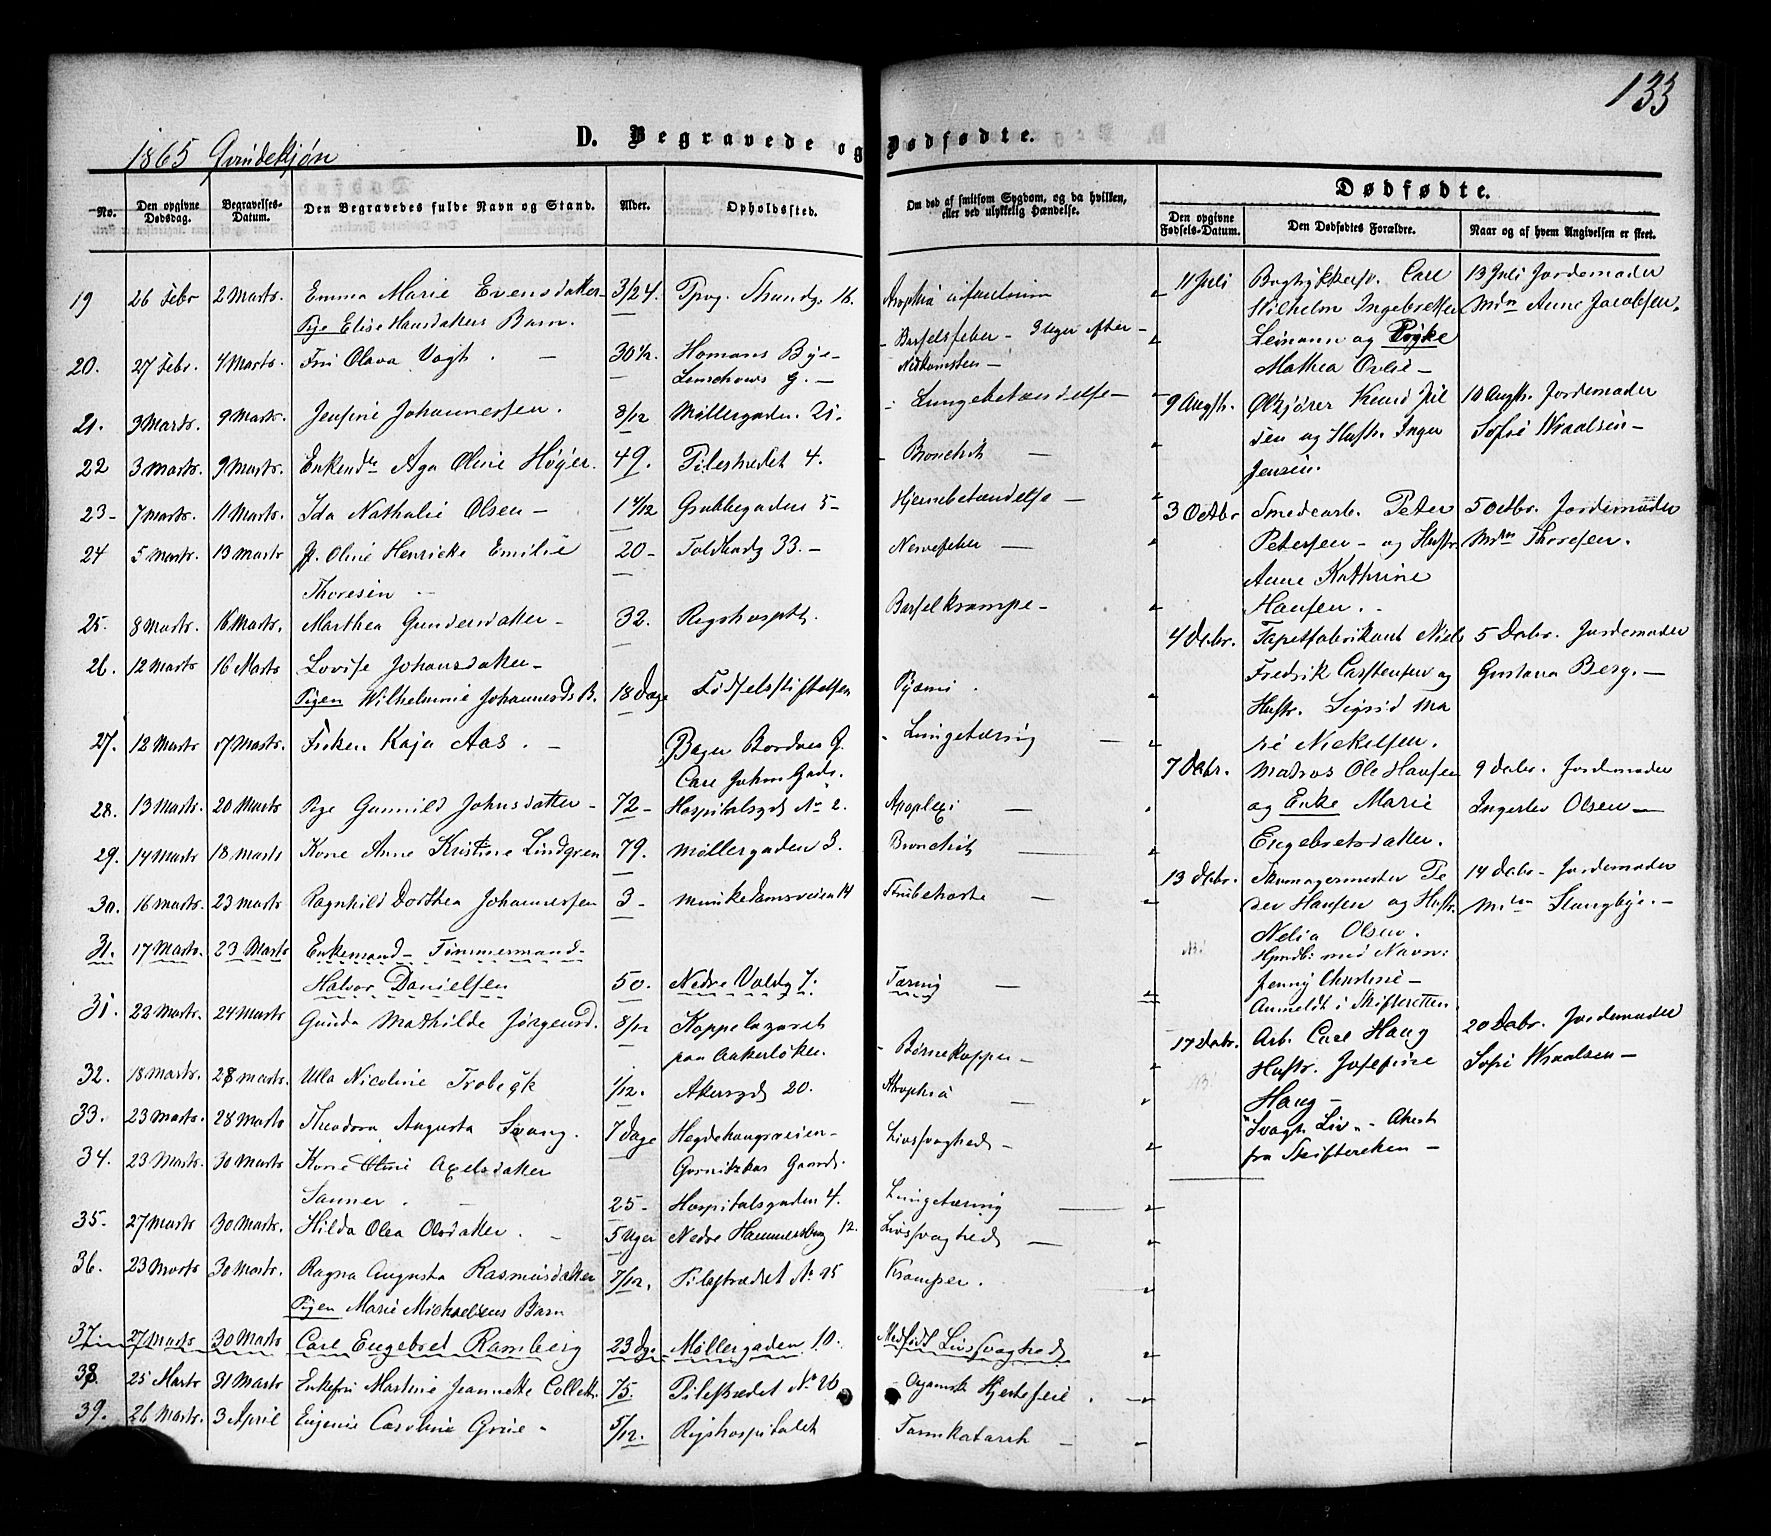 133
1865 Qvindekjøn
D. Begravede og Dødfødte.
No.
Den opgivne Dødsdag.
Begravelses-Datum.
Den Begravedes fulde Navn og Stand.
Alder.
Opholdssted.
Om død af smitsom Sygdom, og da hvilken, eller ved ulykkelig Hændelse.
Dødfødte.
Den opgivne Fødsels-Datum.
Den Dødfødtes Forældre.
Naar og af hvem Angivelsen er skeet.
19 26 Febr 2 Marts. Emma Marie Evensdatter 3/24. Tpvg. Strandg. 16.
Pige Elise Hansdatters Barn.
20. 27 Febr. 4 Marts. Frü Olava Vogt. — 30 1/2. Homans Bye — Barselsfeber — 3 Uger efter —
Lenschows G. — Nedkomsten —
21. 3 Marts. 9 Marts. Jensine Johannessen. 8/12 Møllergaden. 21. Lungebetændelse —
22 3 Marts. 9 Marts. Enkemde Aga Oline Höyer. 49. Pilestrædet 4. Bronchit —
23 — 7 Marts. 11 Marts. Ida Nathalie Olsen — 1 4/12 Grubbegaden 5 — Hjernebetændelse —
24 5 Marts. 13 Marts Jf. Oline Henricke Emilie 20 — Toldbodg 33. — Nervefeber —
Thoresen
25. 8 Marts. 16 Marts. Marthea Gundersdatter — 32. Rigshosptt. Barselkrampe —
26. 12 Marts 16 Marts Lovise Johansdatter —
Pigen Wilhelmine Johannesds B. 18 Dage Fødselsstiftelsen Pyæmi.
27. 12 Marts 17 Marts. Frøken Kaja Aas. — Bager Bordoes G. Lungetæring —
Carl Johns Gade.
28. 13 Marts. 20 Marts Pige Gunnild Johnsdatter — 72 — Hospitalsgd No 2. Apoplexi —
29. 14 Marts 18 Marts Kone Anne Kristine Lindgren 79. Møllergaden 3. Bronchit
30. 16 Marts. 23 Marts Ragnhild Dorthea Johannessen 3 — Munkedamsveien 14 Strubehoste —
31. 17 Marts. 23 Marts Enkemand — Tømmermand —
Halvor Danielsen 50. Nedre Voldg 7. Tæring —
31. 22 Marts. 24 Marts Gunda Mathilde Jørgensd. 8/12 Koppelazaret
paa Ankerløken. Børnekopper —
32. 18 Marts. 28 Marts. Ulla Nicoline 1/12. Akersgd 20. Atrophia —
33. 23 Marts. 28 Marts Theodora Augusta Svang. 7 Dage Hegdehaugsveien — Livssvaghed —
Gornitzkas Gaard.
34. 23 Marts. 30 Marts Kone Oline Axelsdatter
Sanner. — 25 — Hospitalsgaden 4. Lungetæring
35. 27 Marts 30 Marts. Hilda Olea Olsdatter. — 5 Uger Nedre Hammersborg 12. Livssvaghed —
36. 23 Marts 30 Marts. Ragna Augusta Rasmusdatter 7/12. Pilestrædet No 95 Kramper.
Pigen Marie Michaelsens Barn
37. 27 Marts 30 Marts Carl Engebret Ramberg 23 Dg. Møllergaden 10. Medfødt Livssvaghed
38. 25 Marts 31 Marts Enkefrü Martine Jeannette Collett. 75. Pilestrædet No 26 Organisk Hjertefeil.
39. 26 Marts. 3 April Eugenie Caroline Grüe — 5/12. Rigshospitalet Tarmkatarrh —
11 Juli Bogtrykkersv. Carl 13 Juli Jordemoder
Wilhelm Ingebretsen Mdm Anne Jacobsen.
Leimann og Pige
Mathea
9 Augst. Ølkjører Knud Jil 10 Augst. Jordemoder
sen og Hustr. Inger Sofie Wraalsen —
Jensen.
3 Octbr Smedearb. Peter 5 Octbr. Jordemoder
Petersen — og Hustr Mdm Thoresen.
Anne Kathrine
Hansen.
4 Dcbr. Tapetfabrikant Niels 5 Dcbr. Jordemoder
Fredrik Carstensen og Gustava Berg. —
Hustr. Sigrid Ma
rie Nickelsen.
7 Dcbr. Matros Ole Hansen 9 Dcbr. Jordemoder
og Enke Marie Ingerlev Olsen —
Engebretsdatter.
13 Dcbr. Skomagermester Pe 14 Dcbr — Jordemoder
der Hansen og Hustr. Mdm Slangbye. —
Nelia Olsen.
Hjmdb: med Navn:
Jenny Christine —
Anmeldt i Skifteretten.
17 Dcbr. Arb. Carl Haug 20 Dcbr. Jordemoder
Hustr. Josefine Sofie Wraalsen —
Haug —
"Svagt Liv" — Attest
fra Skifteretten —